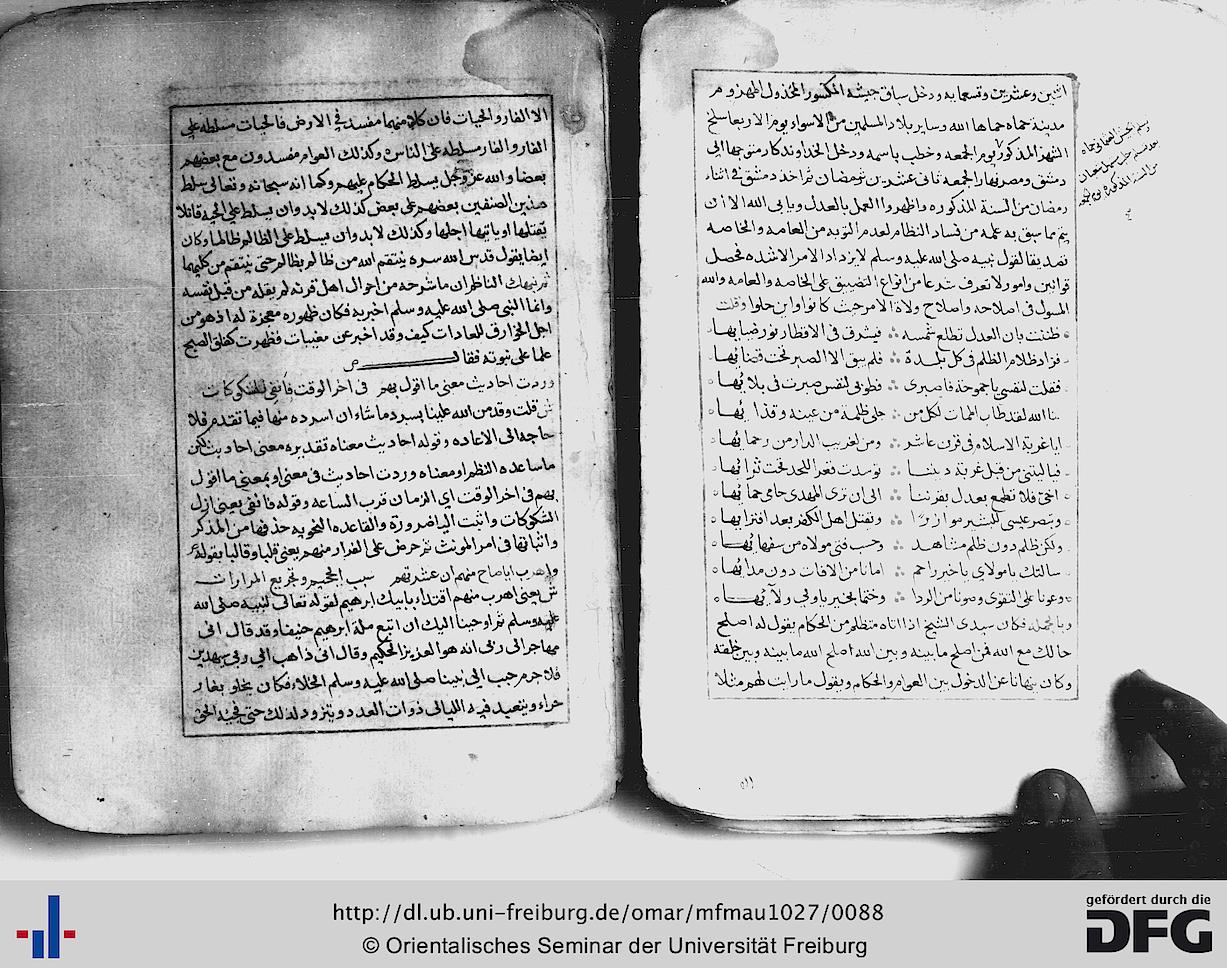 اثنين وعشرين وتسعمايه ودخل سباق جيشه المكسور المخذول المهزوم
مدينة حماه حماها الله وساير بلاد المسلمين من الاسواء يوم الاربعا سلخ
الشهر المذكور يوم الجمعه وخطب باسمه ودخل
دمشق ومصر نهار الجمعه ثانى عشرين رمضان ثم اخذ دمشق فى اثناء
رمضان من السنة المذكوره واظهروا العمل بالعدل ويابى الله الا ان
يتم ما سبق به علمه من فساد النظام لعدم التوبه من العامه والخاصه
تصديقا لقول نبيه صلى الله عليه وسلم لا يزداد الامر الا شده فحصل
قوانين وامور لا تعرف شرعا من انواع التضييق على الخاصه والعامه والله
المسول فى اصلاحه واصلاح ولاة الامر حيث كانوا واين حلوا وقلت
ظننت بان العدل تطلع شمسه ∴ فيشرق فى الاقطار نور ضيابها
فزاد ظلام الظلم فى كل بلدة ∴ فلم يبق الا الصبر تحت قضائها
فقلت لنفسى فاصبرى ∴ فطوبى لنفس صبرت فى بلائها
لقد طاب الممات لكل من ∴ جلى ظلمة من عينه وقذائها
ايا غربة الاسلام فى قرن عاشر ∴ ومن لغريب الدار من رحمائها
فياليتنى من قبل غربة ديننا ∴ توسدت قعر اللحد تحت ثرائها
اخى فلا تطمع بعدل بقرننا ∴ الى ان ترى المهدى حامى حمائها
∴ وتقتل اهل الكفر بعد افترائها
ولكن ظلم دون ظلم مشاهد ∴ وحسب فتى مولاه من سفهائها
سالتك يا مولاى يا خير راحم ∴ امانا من الافات دون مدائها
وعونا على التقوى وصونا من الردا ∴ وختما بخير يا ولى ولائها
وبالجمله فكان سيدى الشيخ اذا اتاه متظلم من الحكام يقول له اصلح
حالك مع الله فمن اصلح ما بينه وبين الله اصلح الله ما بينه وبين خلقه
وكان ينهانا عن الدخول بين العوام والحكام ويقول ما رايت لهم مثلا
الا الفار والحيات فان كلا منهما مفسد فى الارض فالحيات مسلطه على
الفار والفار مسلطه على الناس وكذلك العوام مفسدون مع بعضهم
بعضا والله عز وجل يسلط الحكام عليهم وكما انه سبحانه وتعالى سلط
هذين الصنفين بعضهم على بعض كذلك لا بد وان يسلط على الحيه قاتلا
يقتلها او ياتيها اجلها وكذلك لا بد وان يسلط على الظالم ظالما وكان
ايضا يقول قدس الله سره ينتقم الله من ظالم بظالم حتى ينتقم من كليهما
ثم نبهك الناظر ان ما شرحه من احوال اهل قرنه لم يقله من قبل نفسه
وانما النبى صلى الله عليه وسلم اخبر به فكان ظهوره معجزة له اذ هو من
اجل الخوارق للعادات كيف وقد اخبر عن مغيبات فظهرت كفلق الصبح
علما على نبوته فقال
وردت احاديث معنى ما اقول بهم فى اخر الوقت فانفى للشكوكات
ش قلت وقد من الله علينا بسرد ما شاء ان اسرده منها فيما تقدم فلا
حاجه الى الاعاده وقوله احاديث معناه تقديره معنى احاديث لكن
ما ساعده النظم او معناه وردت احاديث فى معنى او بمعنى ما اقول
بهم فى اخر الوقت اى الزمان قرب الساعه وقوله فانفى يعنى ازل
الشكوكات واثبت اليا ضرورة والقاعده النحويه حذفها من المذكر
واثباتها فى امر المونث ثم حرض على الفرار منهم يعنى قلبا وقالبا بقوله
واهرب ايا صاح منهم ان عشرتهم سبب الجحيم وتجريع المرارات
ش يعنى اهرب منهم اقتداء بابيك ابرهيم لقوله تعالى لنبيه صلى الله
عليه وسلم ثم اوحينا اليك ان اتبع ملة ابرهيم حنيفا وقد قال انى
مهاجر الى ربى انه هو العزيز الحكيم وقال انى ذاهب الى ربى سيهدين
فلا جرم حبب الى نبينا صلى الله عليه وسلم الخلاء فكان يخلو بغار
حراء ويتعبد فيه الليالى ذوات العدد ويتزود لذلك حتى فجئه الحق
http://dl.ub.uni-freiburg.de/omar/mfmau1027/0088
© Orientalisches Seminar der Universität Freiburg
gefördert durch die
DFG